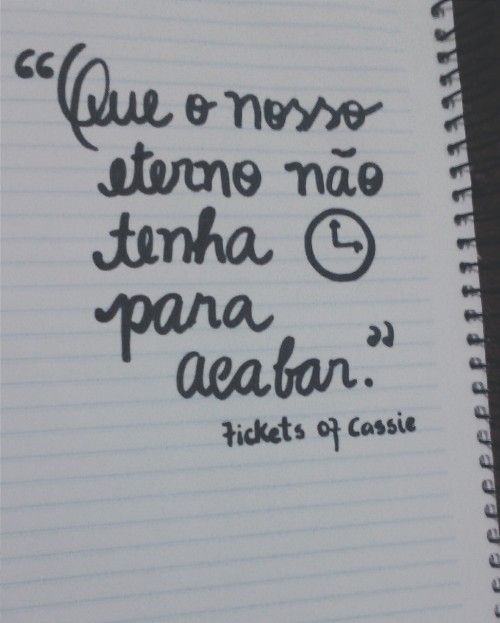 “Que o nosso
eterno não
tenha
para
acabar.”
Tickets of Cassie